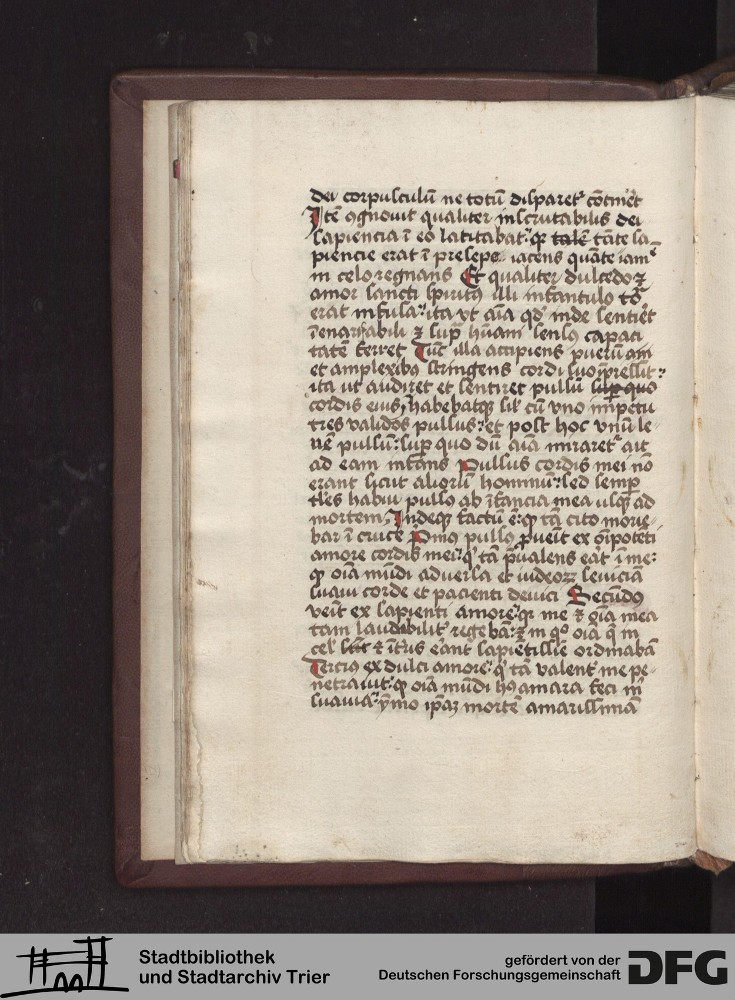 dei corpusculū ne totū disparet᷑ cōtineret
Itē ꝯgnouit qualiter inscrutabilis dei
sapiencia ī eo latitabat᷑ qꝫ tante sa-
piencie erat ī presepe iacens quāte iam
in celo regnans Et qualiter dulcedo ꝫ
amor sancti spiritꝰ illi infantulo
erat infusa ita vt aīa qd̄ inde sentiret
īenarrabili ꝫ suꝑ hūani sensꝰ capaci
tatē ferret Tūc illa accipiens puerū
et amplexibꝰ stringens cordi suo īpressit
ita ut audiret et sentiret pulsū suꝑ quo
cordis eius, habebatqꝫ sil̄ cū vno impetu
tres validos pulsus et post hoc vnū le-
uē pulsū suꝑ quo dū aīa miraret᷑ ait
ad eam infans Pulsus cordis mei nō
erant sicut aliorū hominū sed semꝑ
tl̄es habui pulsꝰ ab īfancia mea usqꝫ ad
mortem, Indeqꝫ factū ē qꝫ tā cito morie-
bar ī cruce Pmꝰ pulsꝰ ꝓuēit ex oīpotēti
amore cordis mei q̇ tā p̄ualens erat ī me
qꝫ oīa mūdi aduersa et iudeoꝝ seuiciā
suaui corde et pacienti deuici Secūdꝰ
venit ex sapienti amore qꝫ me ꝫ oīa mea
tam laudabilit᷑ regebā ꝫ in qͦ oīa q̄ in
cel̄ ꝫ t̄ris erant sapiētissīe ordinabā
Tercius ex dulci amore q̇ tā valent᷑ me pe-
netrauit qꝫ oīa mūdi hꝰ amara feci m̄
suauia ymo ip̄aꝫ mortē amarissimā
Stadtbibliothek
und Stadtarchiv Trier
gefördert von der
Deutschen Forschungsgemeinschaft
DFG